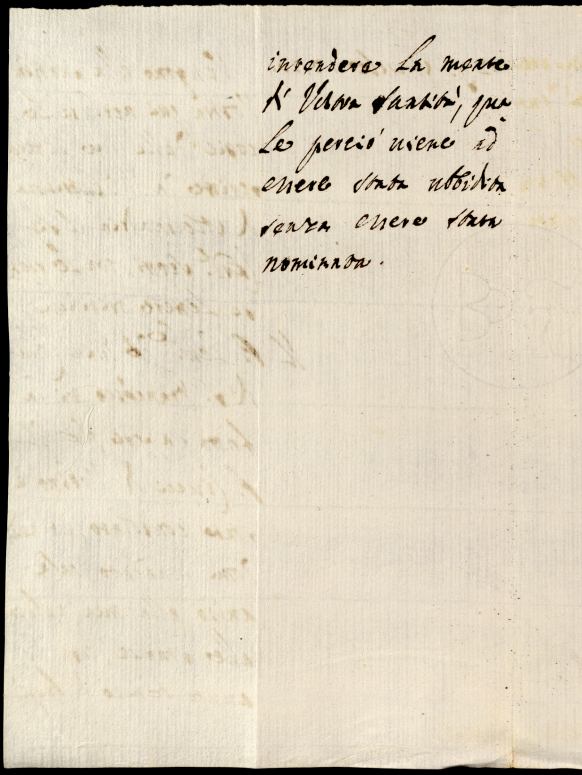 intendere la mente
di Vostra Santità, qua
le perciò uiene ad
essere stata ubbidita
senza essere stata
nominata.